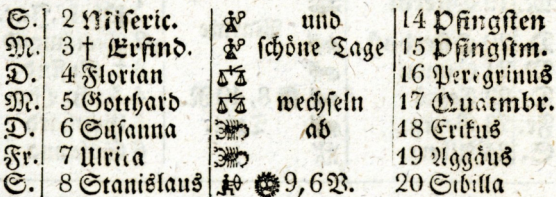 S. 2 Miseric. und 14 Pfingsten
M. 3 † Erfind. schöne Tage 15 Pfingstm.
D. 4 Florian 16 Peregrinus
M. 5 Gotthard wechseln 17 Quatmbr.
D. 6 Susanna ab 18 Erikus
Fr. 7 Ulrica 19 Aggäus
S. 8 Stanislaus 9,6V. 20 Sibilla